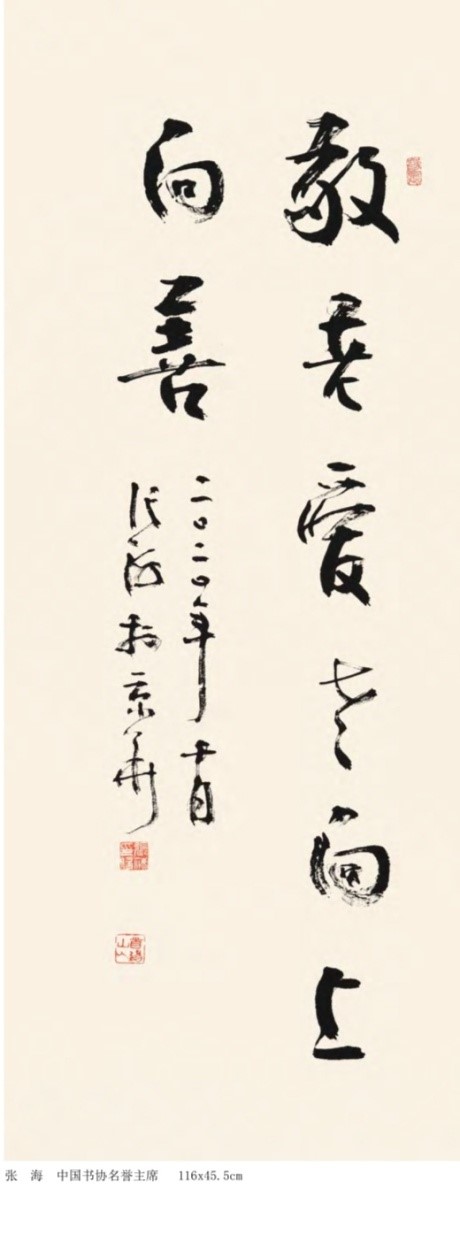 敬老爱老向上
向善
二〇二〇年十月
张海於京華
张 海 中国书协名誉主席 116x45.5cm